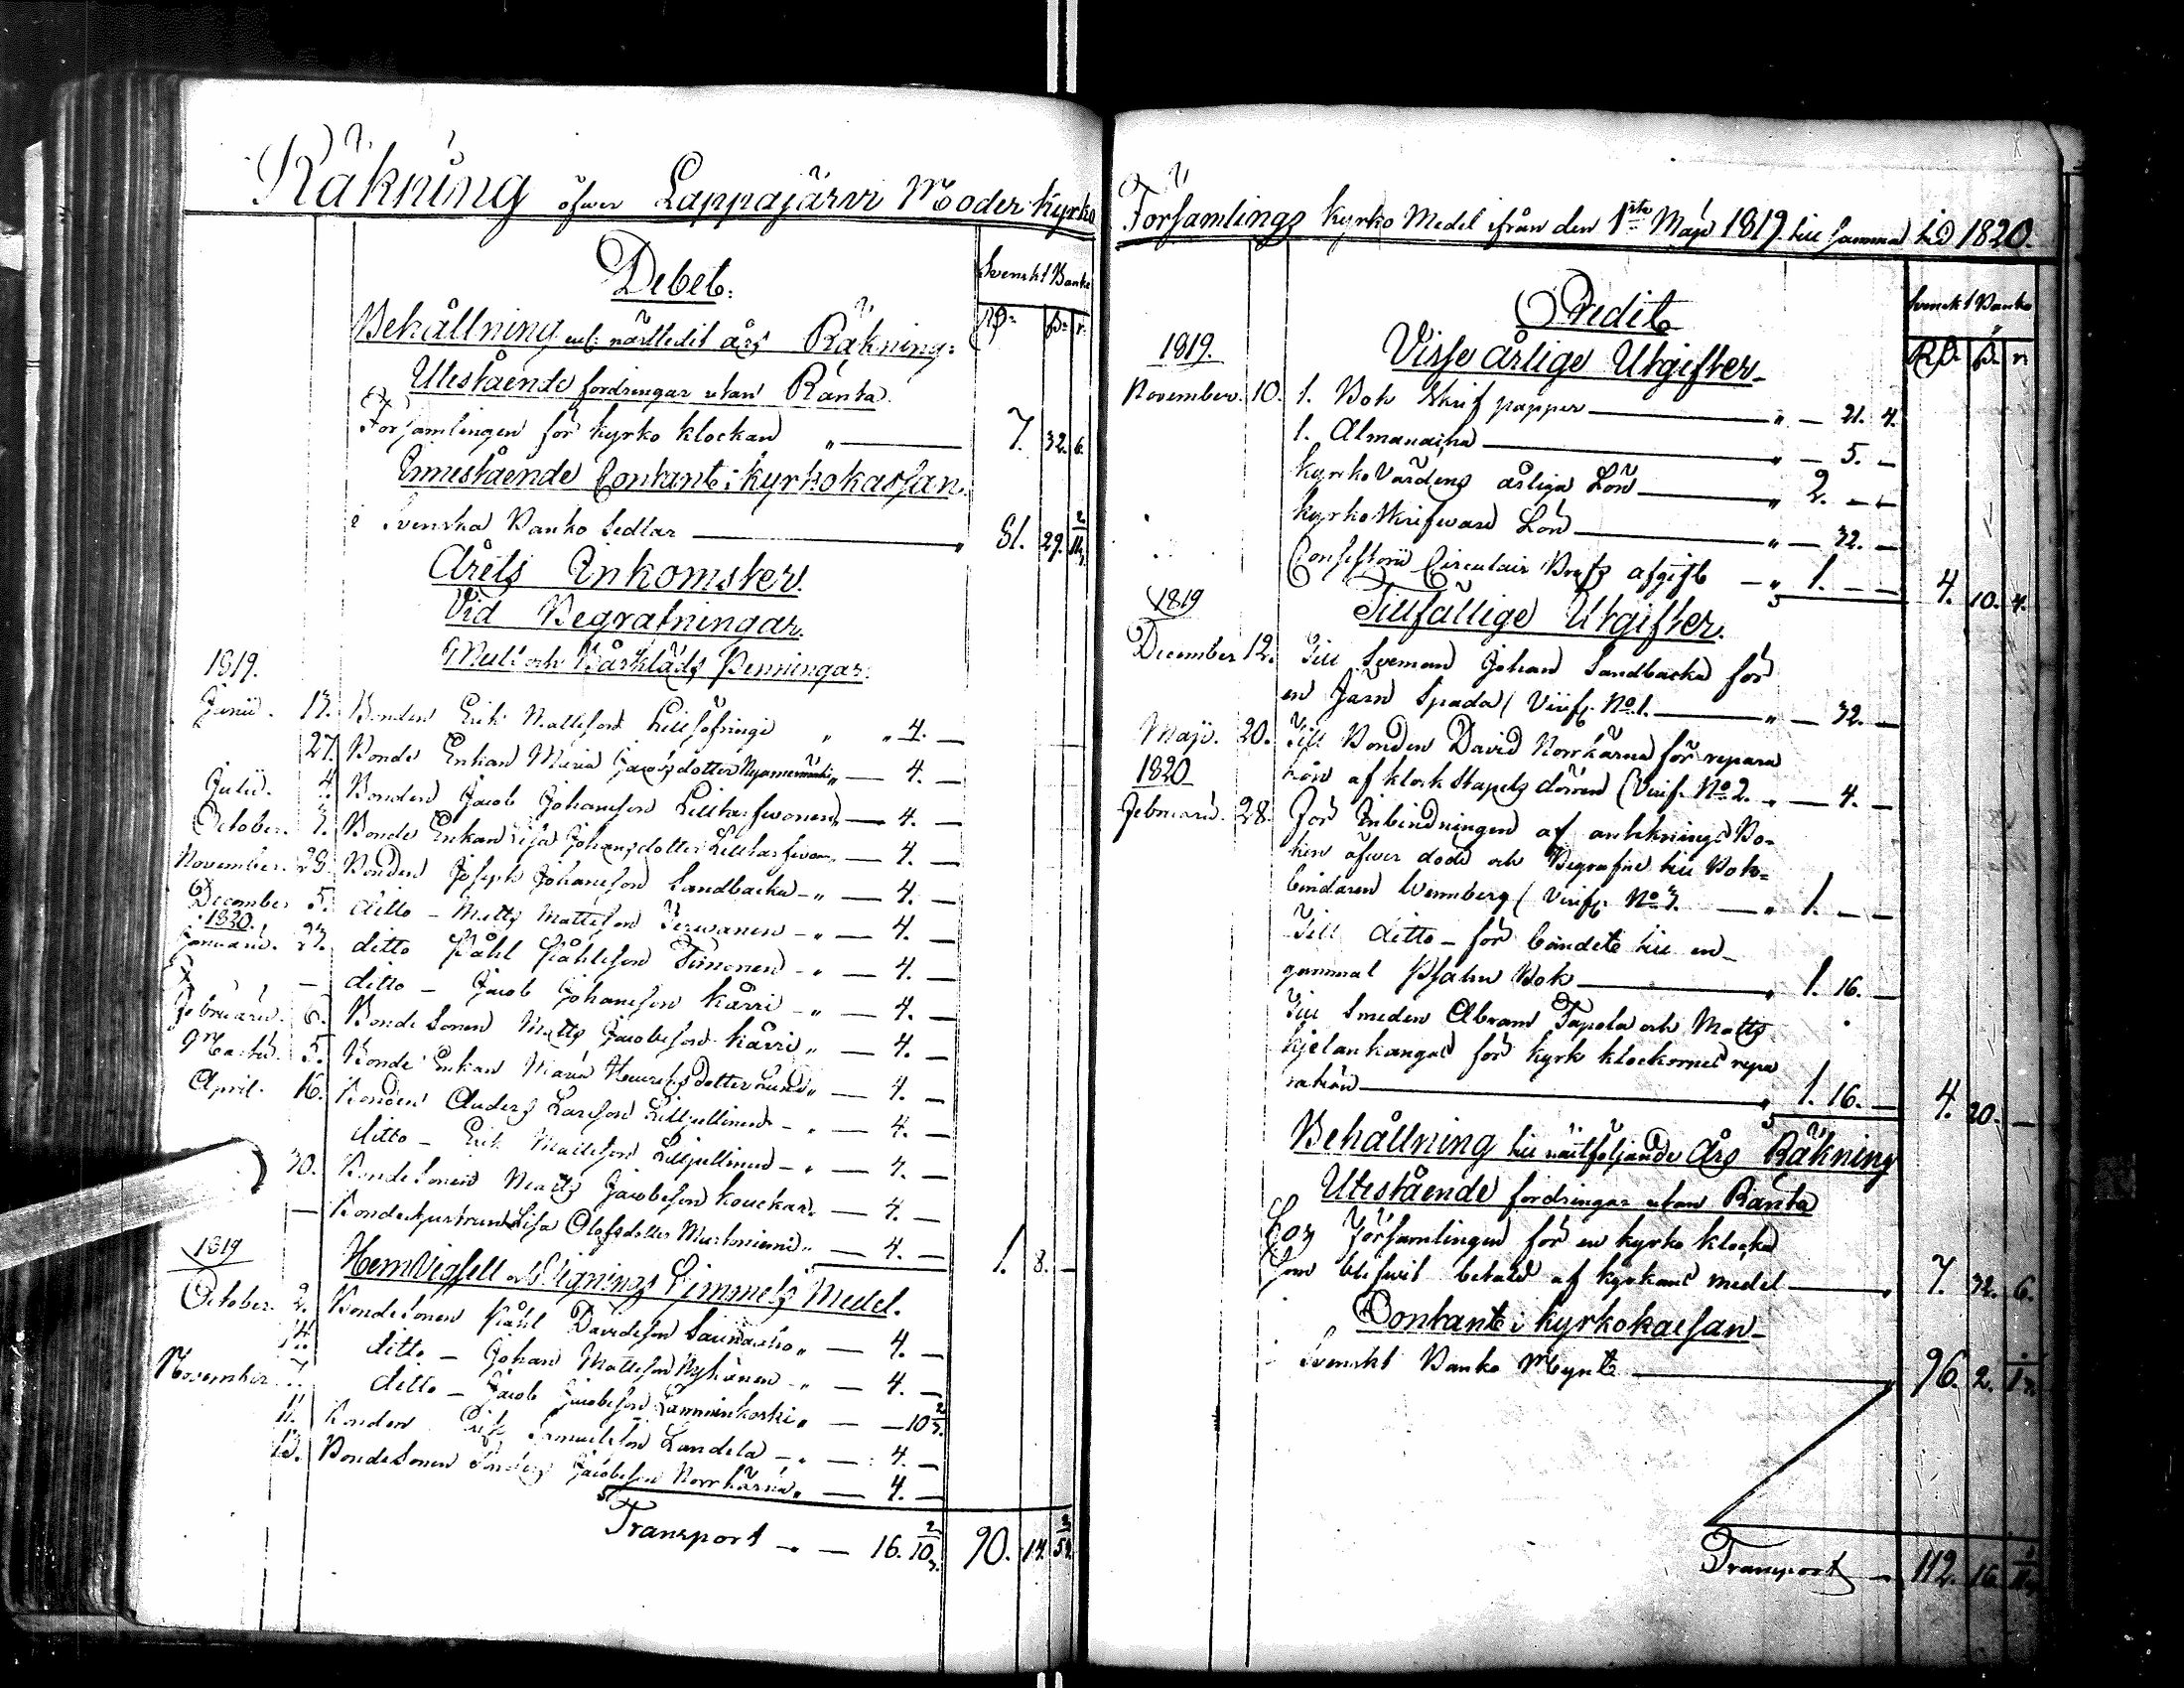 Räkning öfwer Lappajärvi Moder Kyrko
Debet.
Svenskt Banko
Rd. ß. r.
Behållning enl. nästledit års Räkning:
Utestående fordringar utan Ränta.
Församlingen för kyrko klockan " — 7. 32. 6.
Innestående Contant i kyrkokassan.
i Svenska Banko Sedlar — 81. 29. 11 2/3
Årets Inkomster.
Vid Begrafningar.
Mull och Bårkläds Penningar.
1819.
Junii. 13. Bonden Erik Mattsson " " 4. —
27. Bonde Enkan Maria Jacobsdotter — 4. —
Julii. 4. Bonden Jacob Johansson — 4. —
October. 3. Bonde Enkan Lisa Johansdotter — 4. —
November. 28. Bonden Joseph Johansson Sandbacka — " — 4. —
December 5. ditto — Matts Mattsson — " — 4. —
1820.
Januarii. 23. ditto Påhl Påhlsson Timonen — " — 4. —
— ditto — Jacob Johansson Kårri — " — 4. —
Februarii. 6. Bonde Sonen Matts Jacobsson Kårri " — 4. —
Martii. 5. Bonde Enkan Maria Henricsdotter Lund " — 4. —
April. 16. Bonden Anders Larsson — " — 4. —
ditto — Erik Mattsson — " — 4. —
30. Bonde Sonen Matts Jacobsson — 4. —
— Bondehustrun Lisa Olofsdotter " — 4. — 1. 8. —
Hem Vigsell och Vignings Pimmels Medel.
1819
October. 2. Bonde Sonen Påhl Davidsson " — 4. —
ditto — Johan Mattsson Nykänen — " — 4. —
November 7. ditto — Jacob Jacobsson Lamminkoski " — — 10 2/3
11. Bonden Erik Samuelsson Landela — " — 4. —
13. Bonde Sonen Anders Jacobsson Norrkärna " — 4. —
Transport — " — 16. 10 2/3. 90. 14. 5 2/3
Församlings Kyrko Medel ifrån den 1ste Maji 1819. till samma tid 1820.
Credit
Svenskt Banko
Rd. ß. r.
Visse årlige Utgifter
1819.
November. 10. 1. Bok Skrif papper — " — 21. 4.
1. Almanacha — " — 5. —
Kyrko Värdens årliga Lön — " 2. — —
Kyrko Skrifware Lön — " — 32. —
Consistorii Circulair Brefs afgift — " 1. — — 4. 10. 4.
Tillfällige Utgifter.
1819
December 12. Till Johan Sandbacka för
en Järn Spada (Verif. No 1. — " — 32. —
Maji. 20. Till Bonden David Norrkärna för repara
1820
tion af klock Stapels dörren (Verif. No 2. " — 4. —
Februarii. 28. För Inbindningen af antknings Bo-
ken öfwer döde och Begrafne till Bok-
bindaren Wennberg (Verif. No 3. — " 1. — —
Till ditto — för bandet till en
gammal Psalm Bok — " 1. 16. —
Till Smeden Abram Tapola och Matts
Kjelankangas för kyrk klockornes repa
ration — " 1. 16. — 4. 20. —
Behållning till nästföljande Års Räkning
Utestående fordringar utan Ränta
Hos Församlingen för en kyrko klocka
som blifwit betald af kyrkans medel — 7. 32. 6.
Contant i kyrkokassan
Svenskt Banko Mynt — 96. 2.
Transport — 112. 16.